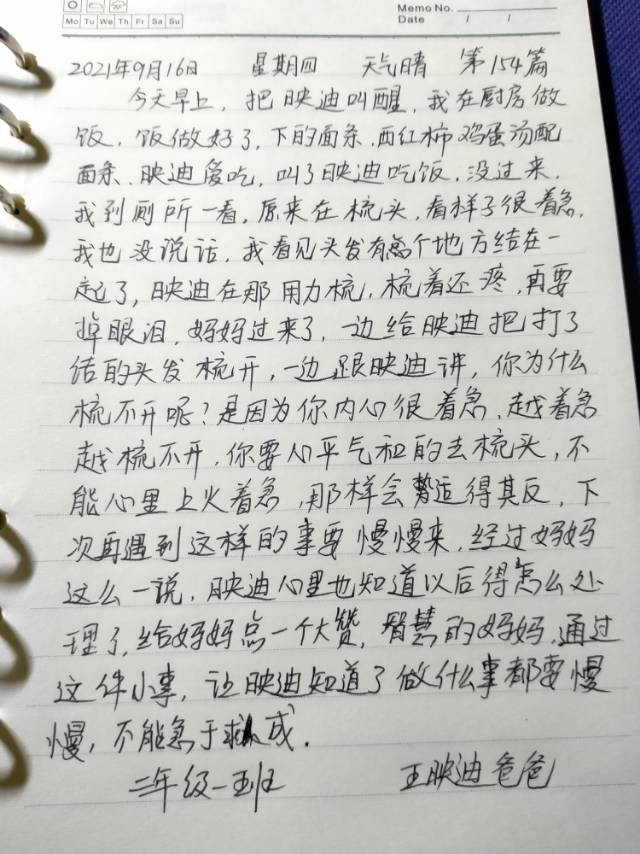 Memo No.
Mo Tu We Th Fr Sa Su
Date / /
2021年9月16日 星期四 天气晴 第154篇
今天早上，把映迪叫醒，我在厨房做
饭，饭做好了，下的面条，西红柿鸡蛋汤配
面条，映迪爱吃，叫了映迪吃饭，没过来，
我到厕所一看，原来在梳头，看样子很着急，
我也没说话，我看见头发有个地方结在一
起了，映迪在那用力梳，梳着还疼，再要
掉眼泪，妈妈过来了，一边给映迪把打了
结的头发梳开，一边跟映迪讲，你为什么
梳不开呢？是因为你内心很着急，越着急
越梳不开，你要心平气和的去梳头，不
能心里上火着急，那样会适得其反，下
次再遇到这样的事要慢慢来，经过妈妈
这么一说，映迪心里也知道以后得怎么处
理了，给妈妈点一个大赞，智慧的妈妈，通过
这件小事，让映迪知道了做什么事都要慢
慢，不能急于求成．
二年级一班 王映迪爸爸